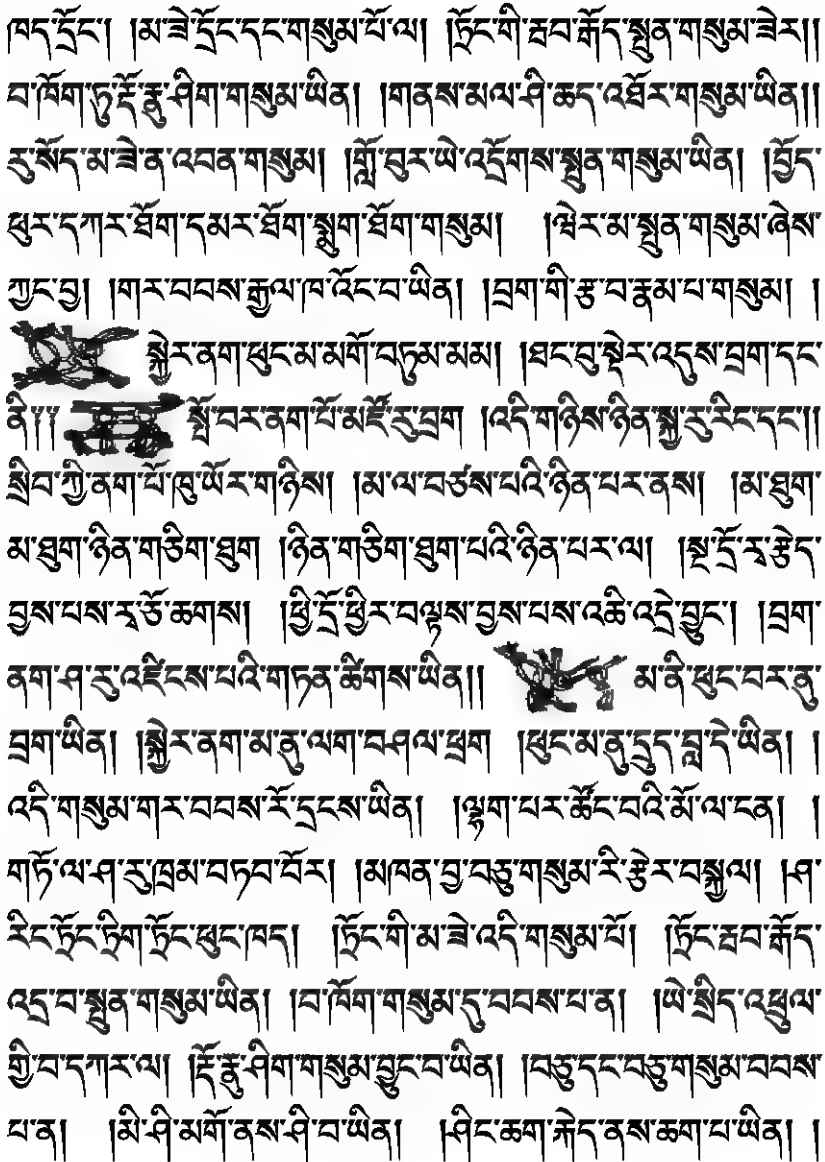 ཁད་དྲོང་། །མ་ཟེ་དྲོང་དང་གསུམ་པོ་ལ། །ཏྲོང་གི་རྦབ་རྒོད་སྤུན་གསུམ་ཟེར།།
བ་ཁོག་ཏུ་རྡོ་རྣུ་ཤིག་གསུམ་ཡིན། །གནས་མལ་ཤི་ཆད་འཐོར་གསུམ་ཡིན།།
རུ་སོད་མ་ཟེ་ན་འབན་གསུམ། །གློ་བུར་ཡེ་འདྲོགས་སྤུན་གསུམ་ཡིན། །བྱོད་
ཕུར་དཀར་ཐོག་དམར་ཐོག་སྨུག་ཐོག་གསུམ། །ཝེར་མ་སྤུན་གསུམ་ཞེས་
ཀྱང་བྱ། །གར་བབས་རྒྱལ་ཁ་འོང་བ་ཡིན། །བྲག་གི་རྩ་བ་རྣམ་པ་གསུམ། །
སྐྱེར་ནག་ཕུང་མ་མགོ་བཏུམ་མམ། །ཐང་བུ་སྡེར་འདུས་བྲག་དང་
ནི༎ སྤོ་བར་ནག་པོ་མཛོ་རུ་བྲག །འདི་གཉིས་ཉིན་སྐྱ་རུ་རིང་དང་།།
སྲིབ་ཀྱི་ནག་པོ་ཁུ་ཡོར་གཉིས། །མ་ལ་བཙས་པའི་ཉིན་པར་ནས། །མ་ཐུག་
མ་ཐུག་ཉིན་གཅིག་ཐུག །ཉིན་གཅིག་ཐུག་པའི་ཉིན་པར་ལ། །སྔ་དྲོ་རྭ་རྩེད་
བྱས་པས་རྭ་ཅོ་ཆགས། །ཕྱི་དྲོ་ཕྱིར་བལྟས་བྱས་པས་འཆི་འདྲེ་བྱུང་། །བྲག་
ནག་ཤ་རུ་འཛིངས་པའི་གཏན་ཚིགས་ཡིན།། མ་ནི་ཕུང་བར་ནུ་
བྲག་ཡིན། །སྐྱེར་ནག་མ་ནུ་ལག་བཤལ་ཕྲག །ཕུང་མ་ནུ་དྲུད་བླ་དེ་ཡིན། །
འདི་གསུམ་གར་བབས་རོ་དྲངས་ཡིན། །ལྷག་པར་ཚོང་བའི་མོ་ལ་ངན། །
གཏོ་ལ་ཤ་རུ་ཁྲམ་བཏབ་བོར། །མཁན་བྱ་བཅུ་གསུམ་རི་རྩེར་བསྐྱལ། །ཤ་
རིང་ཏྲོང་ཏྲིག་ཏྲོང་ཕུང་ཁད། །ཏྲོང་གི་མ་ཟེ་འདི་གསུམ་པོ། །ཏྲོང་རྦབ་རྒོད་
འདྲ་བ་སྤུན་གསུམ་ཡིན། །བ་ཁོག་གསུམ་དུ་བབས་པ་ན། །ཡེ་སྲིད་འཕྲུལ་
གྱི་བ་དཀར་ལ། །རྡོ་རྣུ་ཤིག་གསུམ་བྱུང་བ་ཡིན། །བཅུ་དང་བཅུ་གསུམ་བབས་
པ་ན། །མི་ཤི་མགོ་ནས་ཤི་བ་ཡིན། །ཤིང་ཆག་རྐེད་ནས་ཆག་པ་ཡིན། །